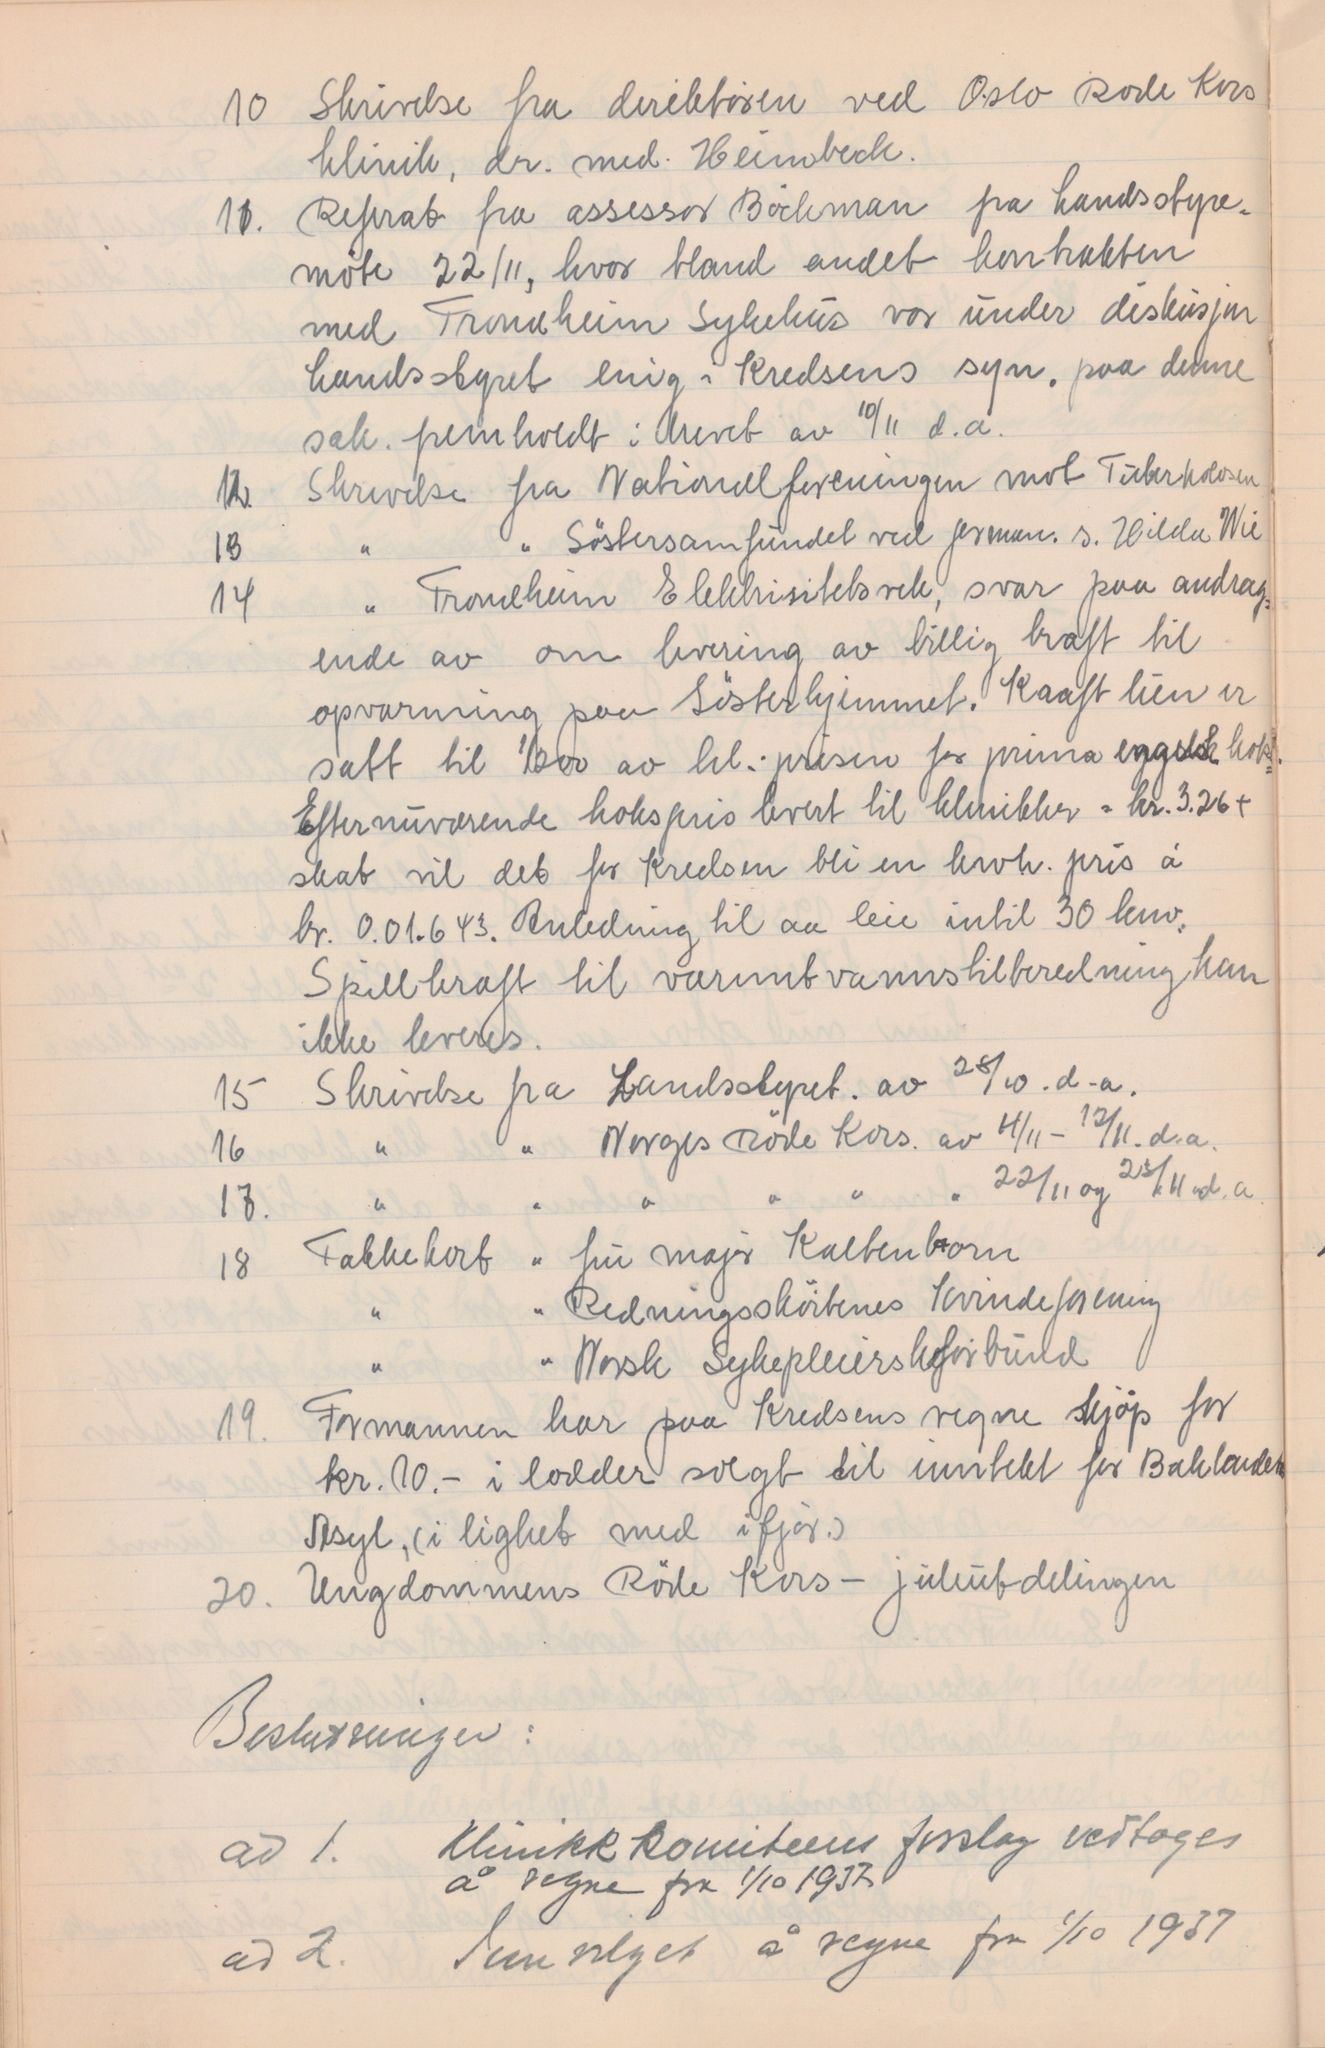 10 Skrivelse fra direktören ved Oslo Röde Kors
klinik, dr. med. Heimbeck.
11. Referat fra assessor Böckman fra landsstyre-
möte 22/11, hvor bland andet kontrakten
med Trondheim Sykehus var under diskusjon
landsstyret enig i Kredsens syn. paa denne
sak. fremholdt i brevet av 10/11 d.a.
12. Skrivelse fra Nationalforeningen mot Tuberkolosen
13 " " Söstersamfundet ved forman. s. Hilda Wie
14 " Trondheim Elektrisitetsverk, svar paa andrag-
ende av om levering av billig kraft til
opvarming paa Södsterhjemmet. Kraftlien er
satt til 1/200 av hl.-prisen for prima engelsk koks.
Efter nuværende kokspris levert til klinikker = kr. 3.26 +
skat vil det for Kredsen bli en kwh. pris á
kr. 0.01.643. Anledning til aa leie intil 30 kw.
Spillkraft til varmtvannstilberedning kan
ikke leveres.
15 Skrivelse fra Landsstyret. av 28/10. d.a.
16 " " Norges Röde Kors. av 4/11 - 12/11. d.a.
17. " " " " " " 22/11 og 23/11 d.a
18 Takkekort " fru major Kaltenborn
" " Redningsskötenes Kvindeforening
" " Norsk Sykepleierskeforbund
19. Formannen har paa Kredsens vegne kjöp for
kr. 10.- i lodder solgt til inntekt for Baklandets
Asyl, (i lighet med ifjor.)
20. Ungdommens Röde Kors - juleutdelingen
Beslutninger:
ad 1. Klinikkkomiteens forslag vedtages
å regne fra 1/10 1937
ad 2. Innvilget å regne fra 1/10 1937